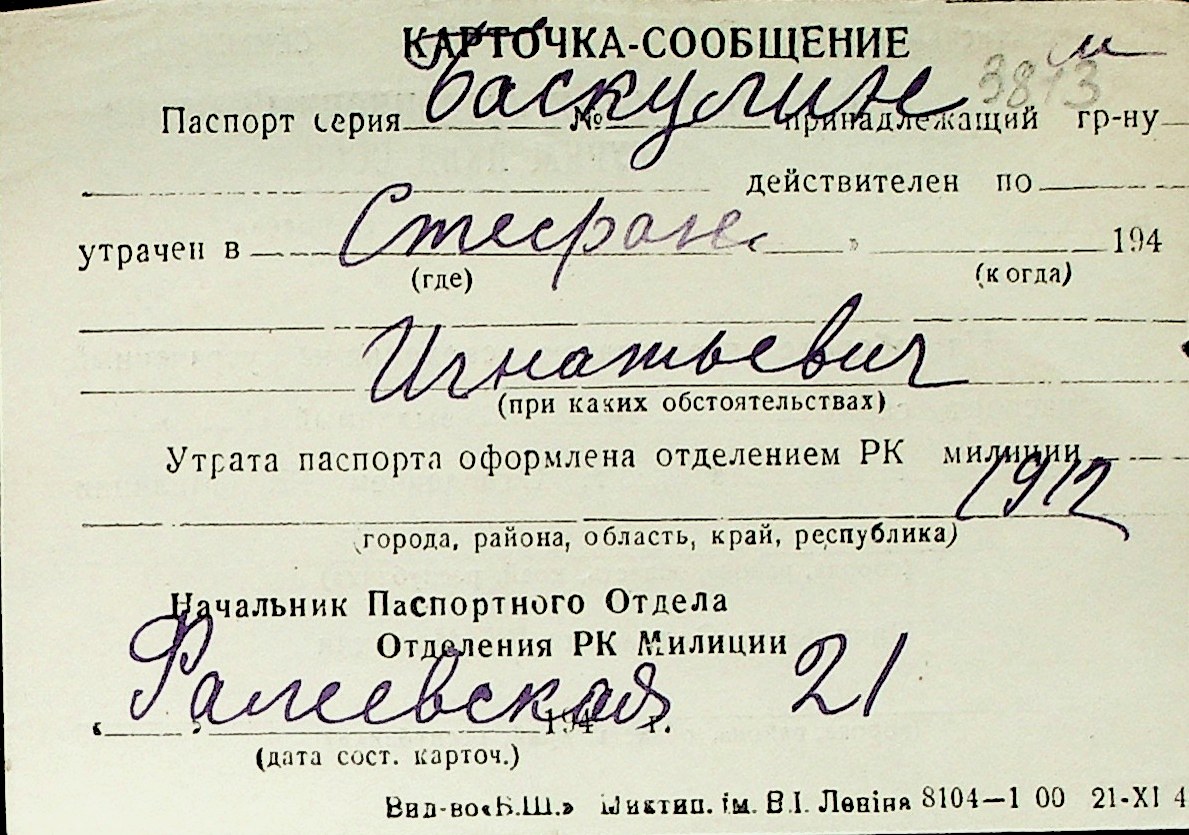 КАРТОЧКА-СООБЩЕНИЕ
и
Баскулин 3813
Паспорт серия № принадлежащий гр-ну
действителен по
Стефан
утрачен в " 194
(где) (когда)
Игнатьевич
(при каких обстоятельствах)
Утрата паспорта оформлена отделением РК милиции
1912
(города, района, область, край, республика)
Начальник Паспортного Отдела
Отделения РК Милиции
Фалеевская 21
" " 194 г.
(дата сост. карточ.)
Вид-во «Б.Ш.» ім. В.І. Леніна 8104—1 00 21-XI 4